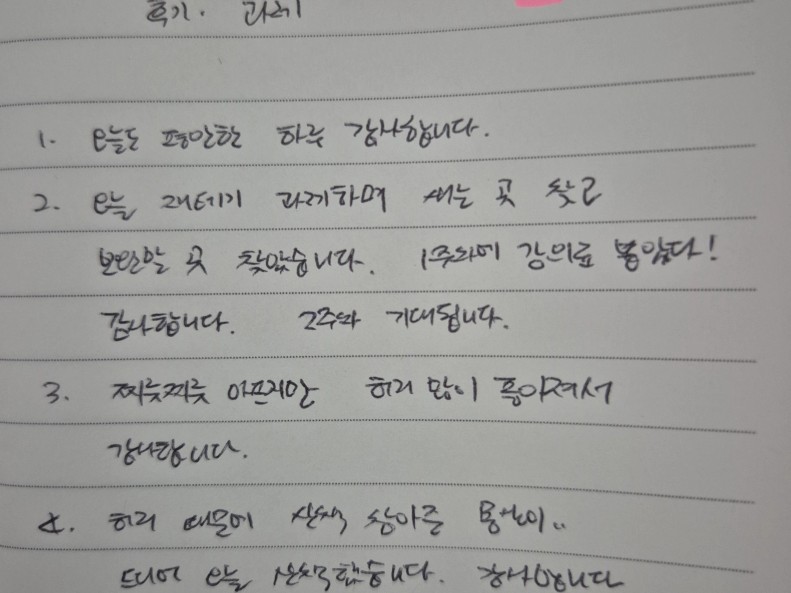 후기. 과제
1. 오늘도 평안한 하루 감사합니다.
2. 오늘 재테기 과제하며 새는 곳 찾고
보완할 곳 찾았습니다. 1주차에 강의료 뽑았다!
감사합니다. 2주차 기대됩니다.
3. 찌릿찌릿 아프지만 허리 많이 좋아져서
감사합니다.
4. 허리 때문에 산책 참아준
드디어 오늘 산책했습니다. 감사합니다